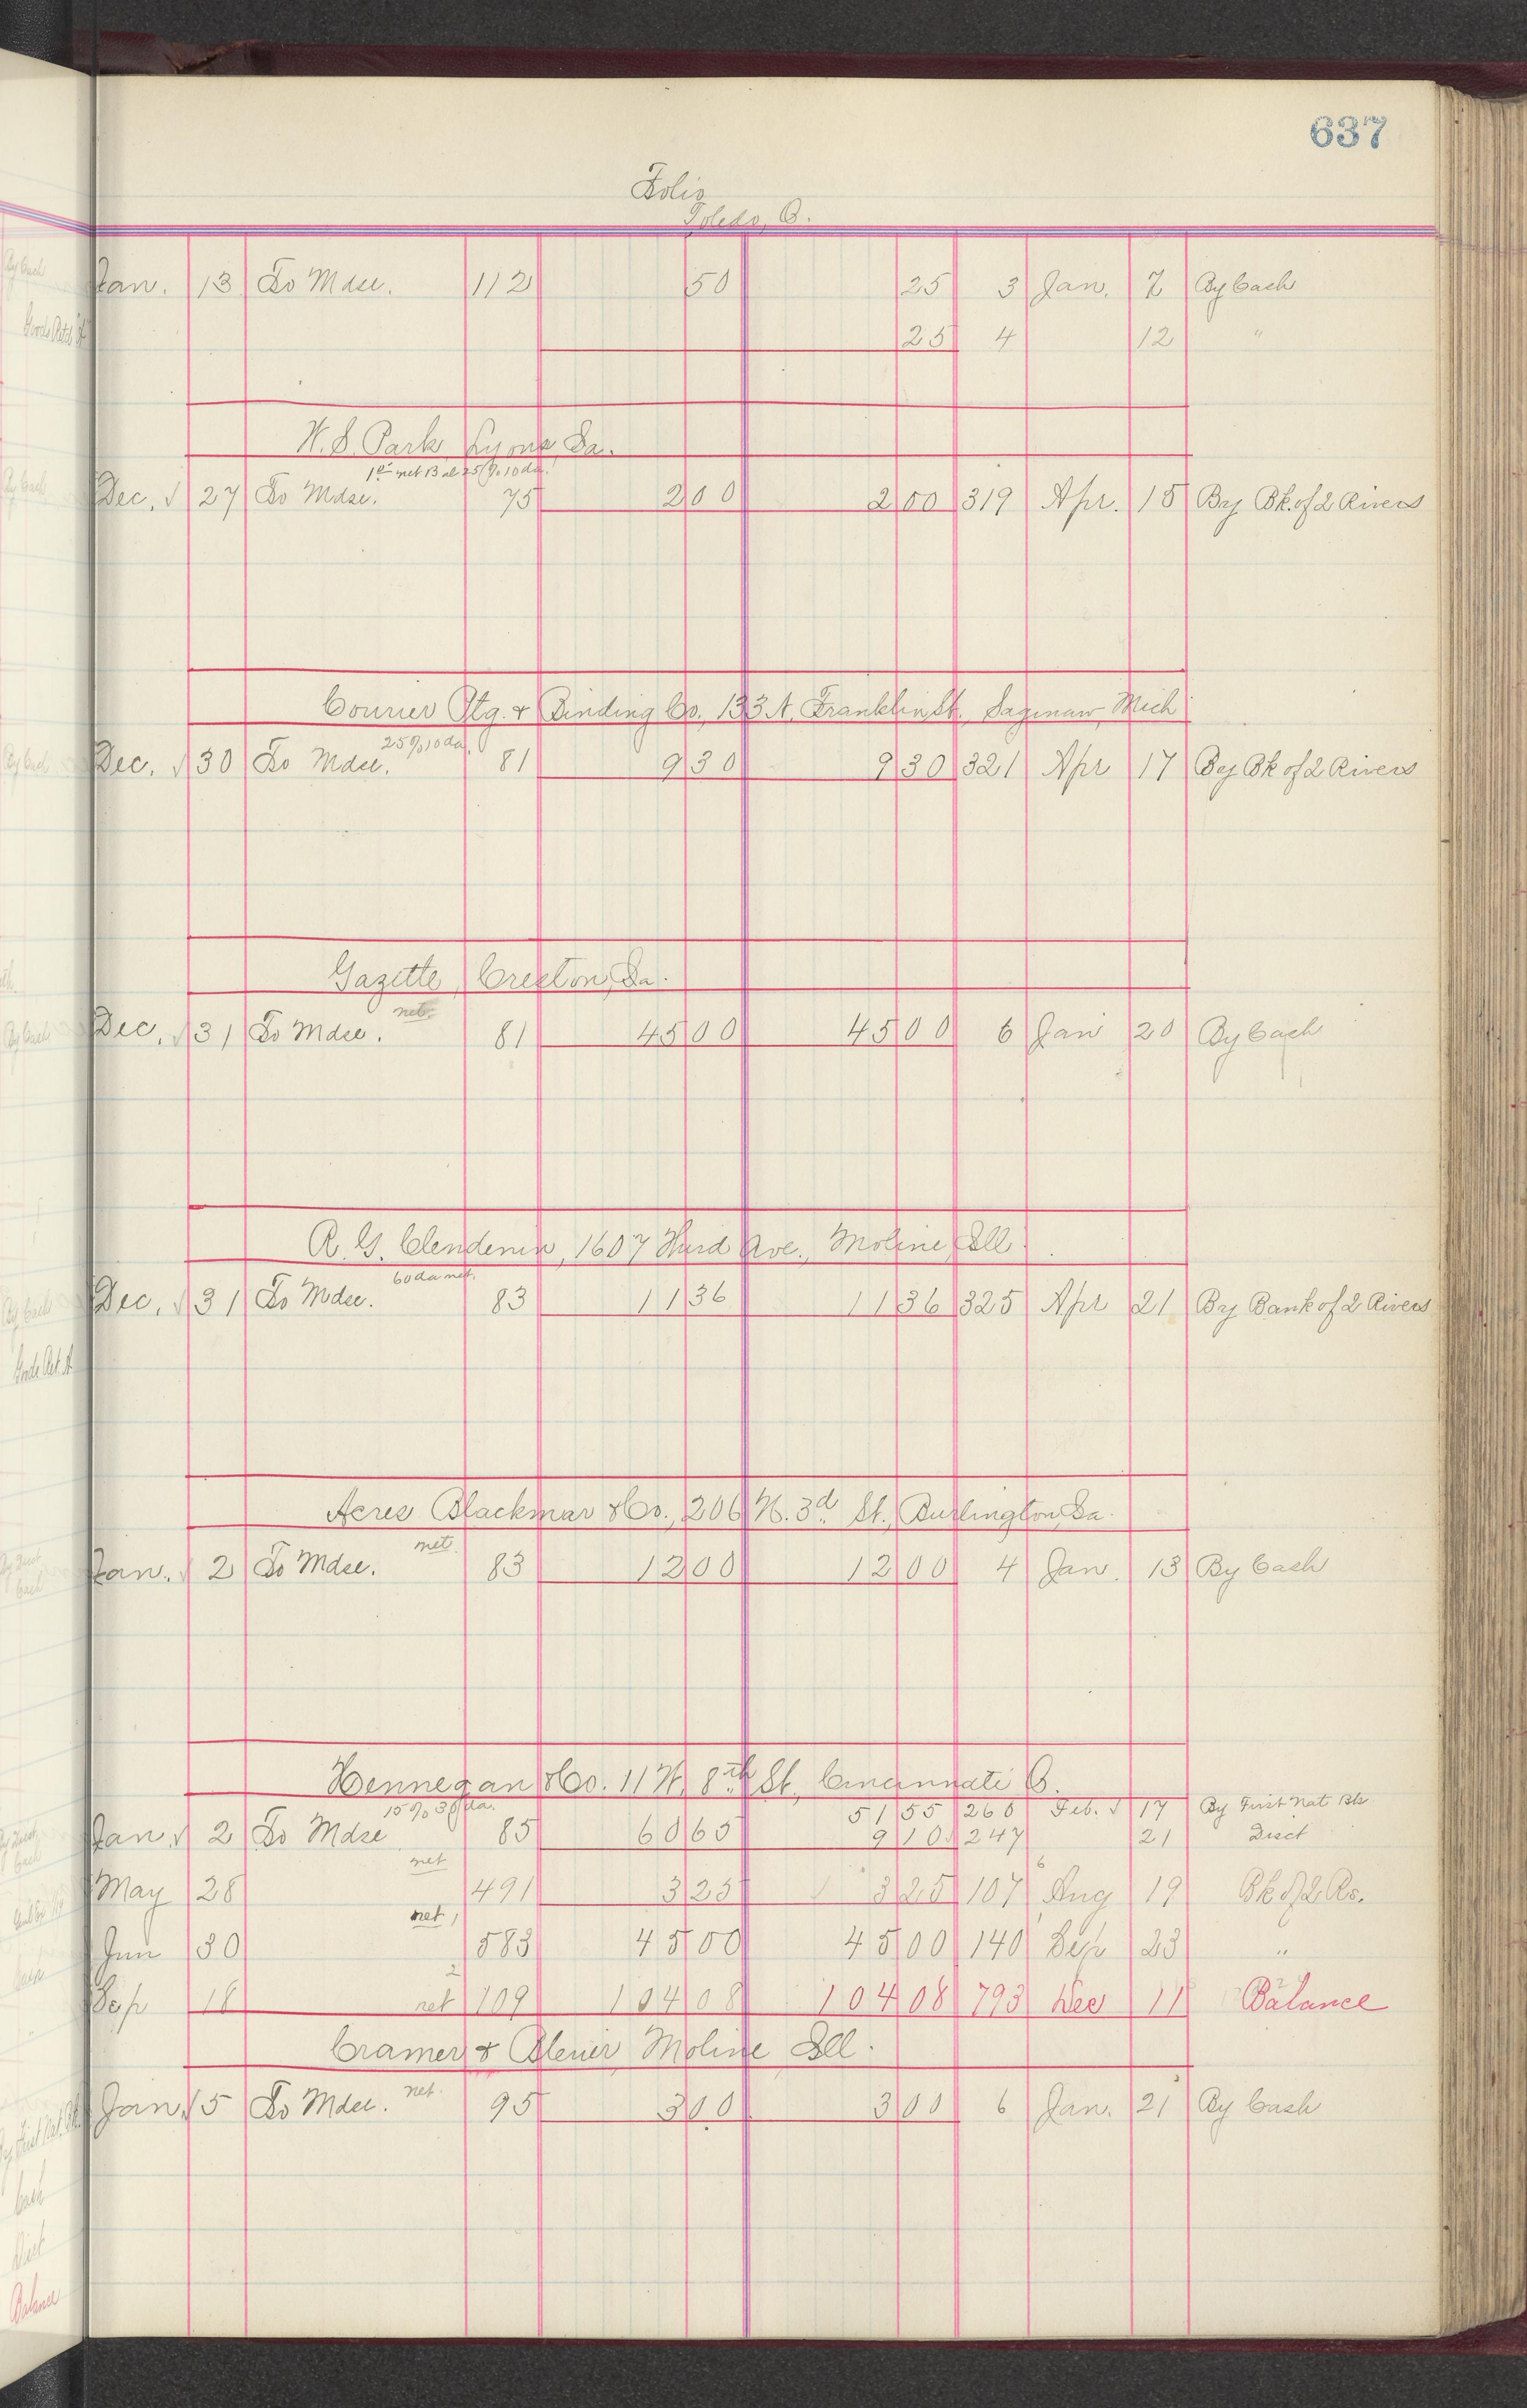 637
Folio
Toledo, O.
Jan. 13 To Mdse. 112 50 25 3 Jan. 7 By Cash
25 4 12 "
W. S. Park, Lyons, Ia.
1 00 net Bal 25% 10 da.
Dec. √ 27 To Mdse. 75 2 00 2 00 319 Apr. 15 By Bk. of 2 Rivers
Courier Ptg. & Binding Co., 133 N. Franklin St., Saginaw, Mich
25% 10 da.
Dec. √ 30 To Mdse. 81 9 30 9 30 321 Apr 17 By Bk of 2 Rivers
Gazette, Creston, Ia.
net.
Dec. √ 31 To Mdse. 81 45 00 45 00 6 Jan 20 By Cash
R. G. Clendenin, 1607 Third Ave., Moline, Ill.
60 da net.
Dec. √ 31 To Mdse. 83 11 36 11 36 325 Apr 21 By Bank of 2 Rivers
Acres Blackmar & Co., 206 N. 3d St., Burlington, Ia.
net.
Jan. √ 2 To Mdse. 83 12 00 12 00 4 Jan. 13 By Cash
Hennegan & Co. 11 W. 8th St., Cincinnati O.
15% 30 da. 51 55 260 Feb. √ 17 By First Nat Bk
Jan √ 2 To Mdse 85 60 65 9 10 247 21 Disct
net
May 28 491 3 25 3 25 107 6 Aug 19 Bk of 2 Rs.
net
Jun 30 583 45 00 45 00 140 Sep 23 "
Sep 18 net 2 109 104 08 104 08 793 Dec 11 Balance
Cramer &
Moline Ill.
Jan. √ 5 To Mdse. net. 95 3 00 3 00 6 Jan. 21 By Cash